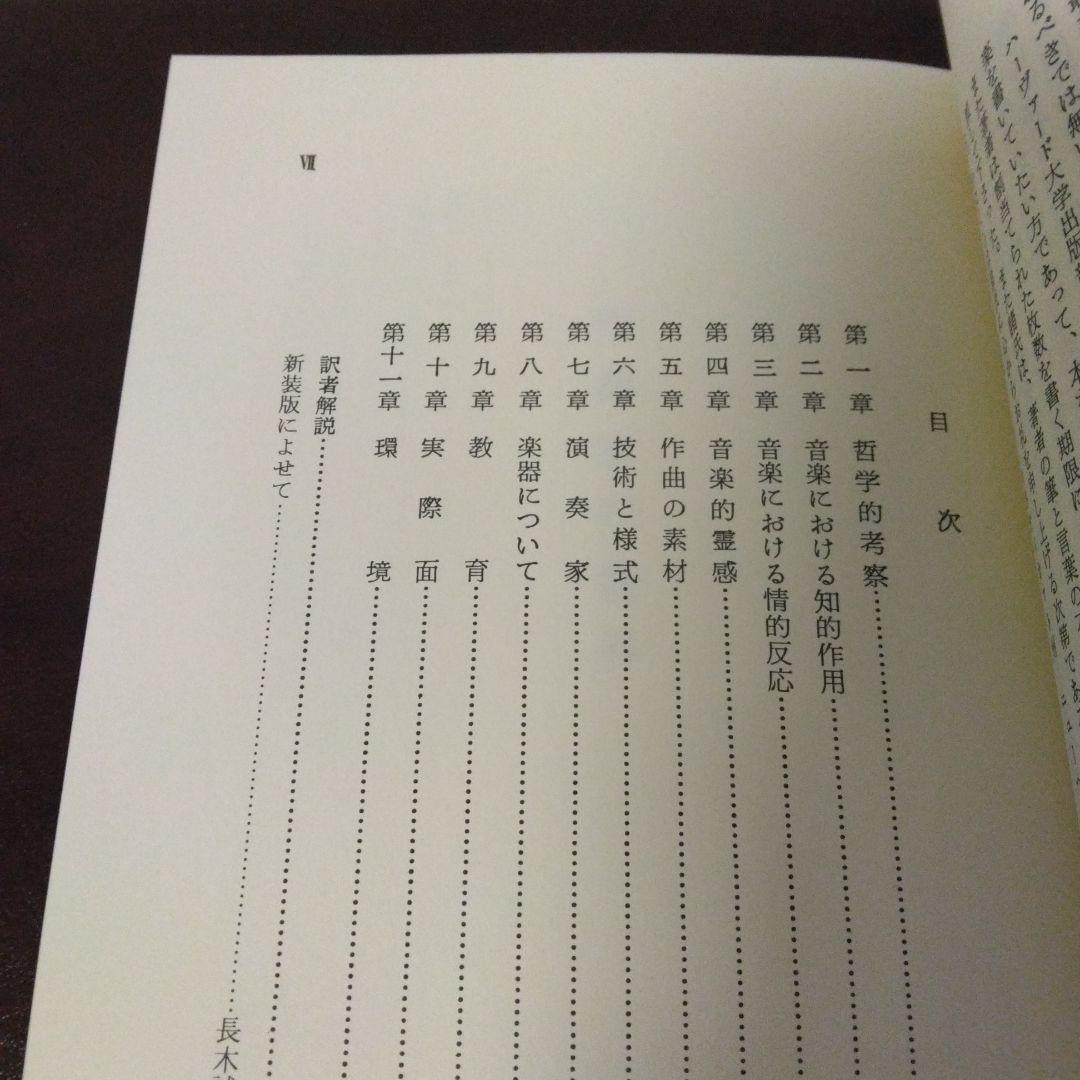 るべきでは無い
ハーヴァード大学出版
を書いていたい方であって、本
また著者は割当てられた枚数を書く期限に
著者の筆と言葉の
上げる次第であ
ニュー
目次
第一章 哲学的考察
第二章 音楽における知的作用
第三章 音楽における情的反応
第四章 音楽的霊感
第五章 作曲の素材
第六章 技術と様式
第七章 演奏家
第八章 楽器について
第九章 教育
第十章 実際面
第十一章 環境
訳者解説
新装版によせて 長木
VII